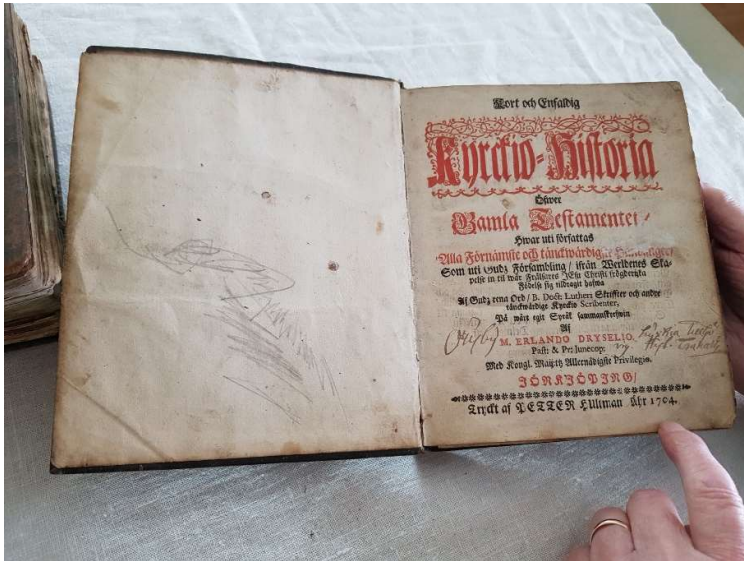 Kort och Enfaldig
Kyrckio-Historia
Öfwer
Gamla Testamentet /
Hwar uti författas
Alla Förnämste och tänckwärdigste
Som uti Gudz Försambling / ifrån Werldenes Ska-
pelse in til wår Frälsares JEsu Christi
Födelse sig tildragit hafwa
Af Gudz rena Ord / B. Doct: Lutheri Skriffter och andre
tänckwärdige Kyrckio Scribenter,
På wårt egit Språk sammanskrefwin
Af
M. ERLANDO DRYSELIO.
Past: & Pr: Junecop:
Med Kongl. Maij:tz Allernådigste Privilegio.
JÖNKJÖPING /
Tryckt af PETTER Hultman Åhr 1704.